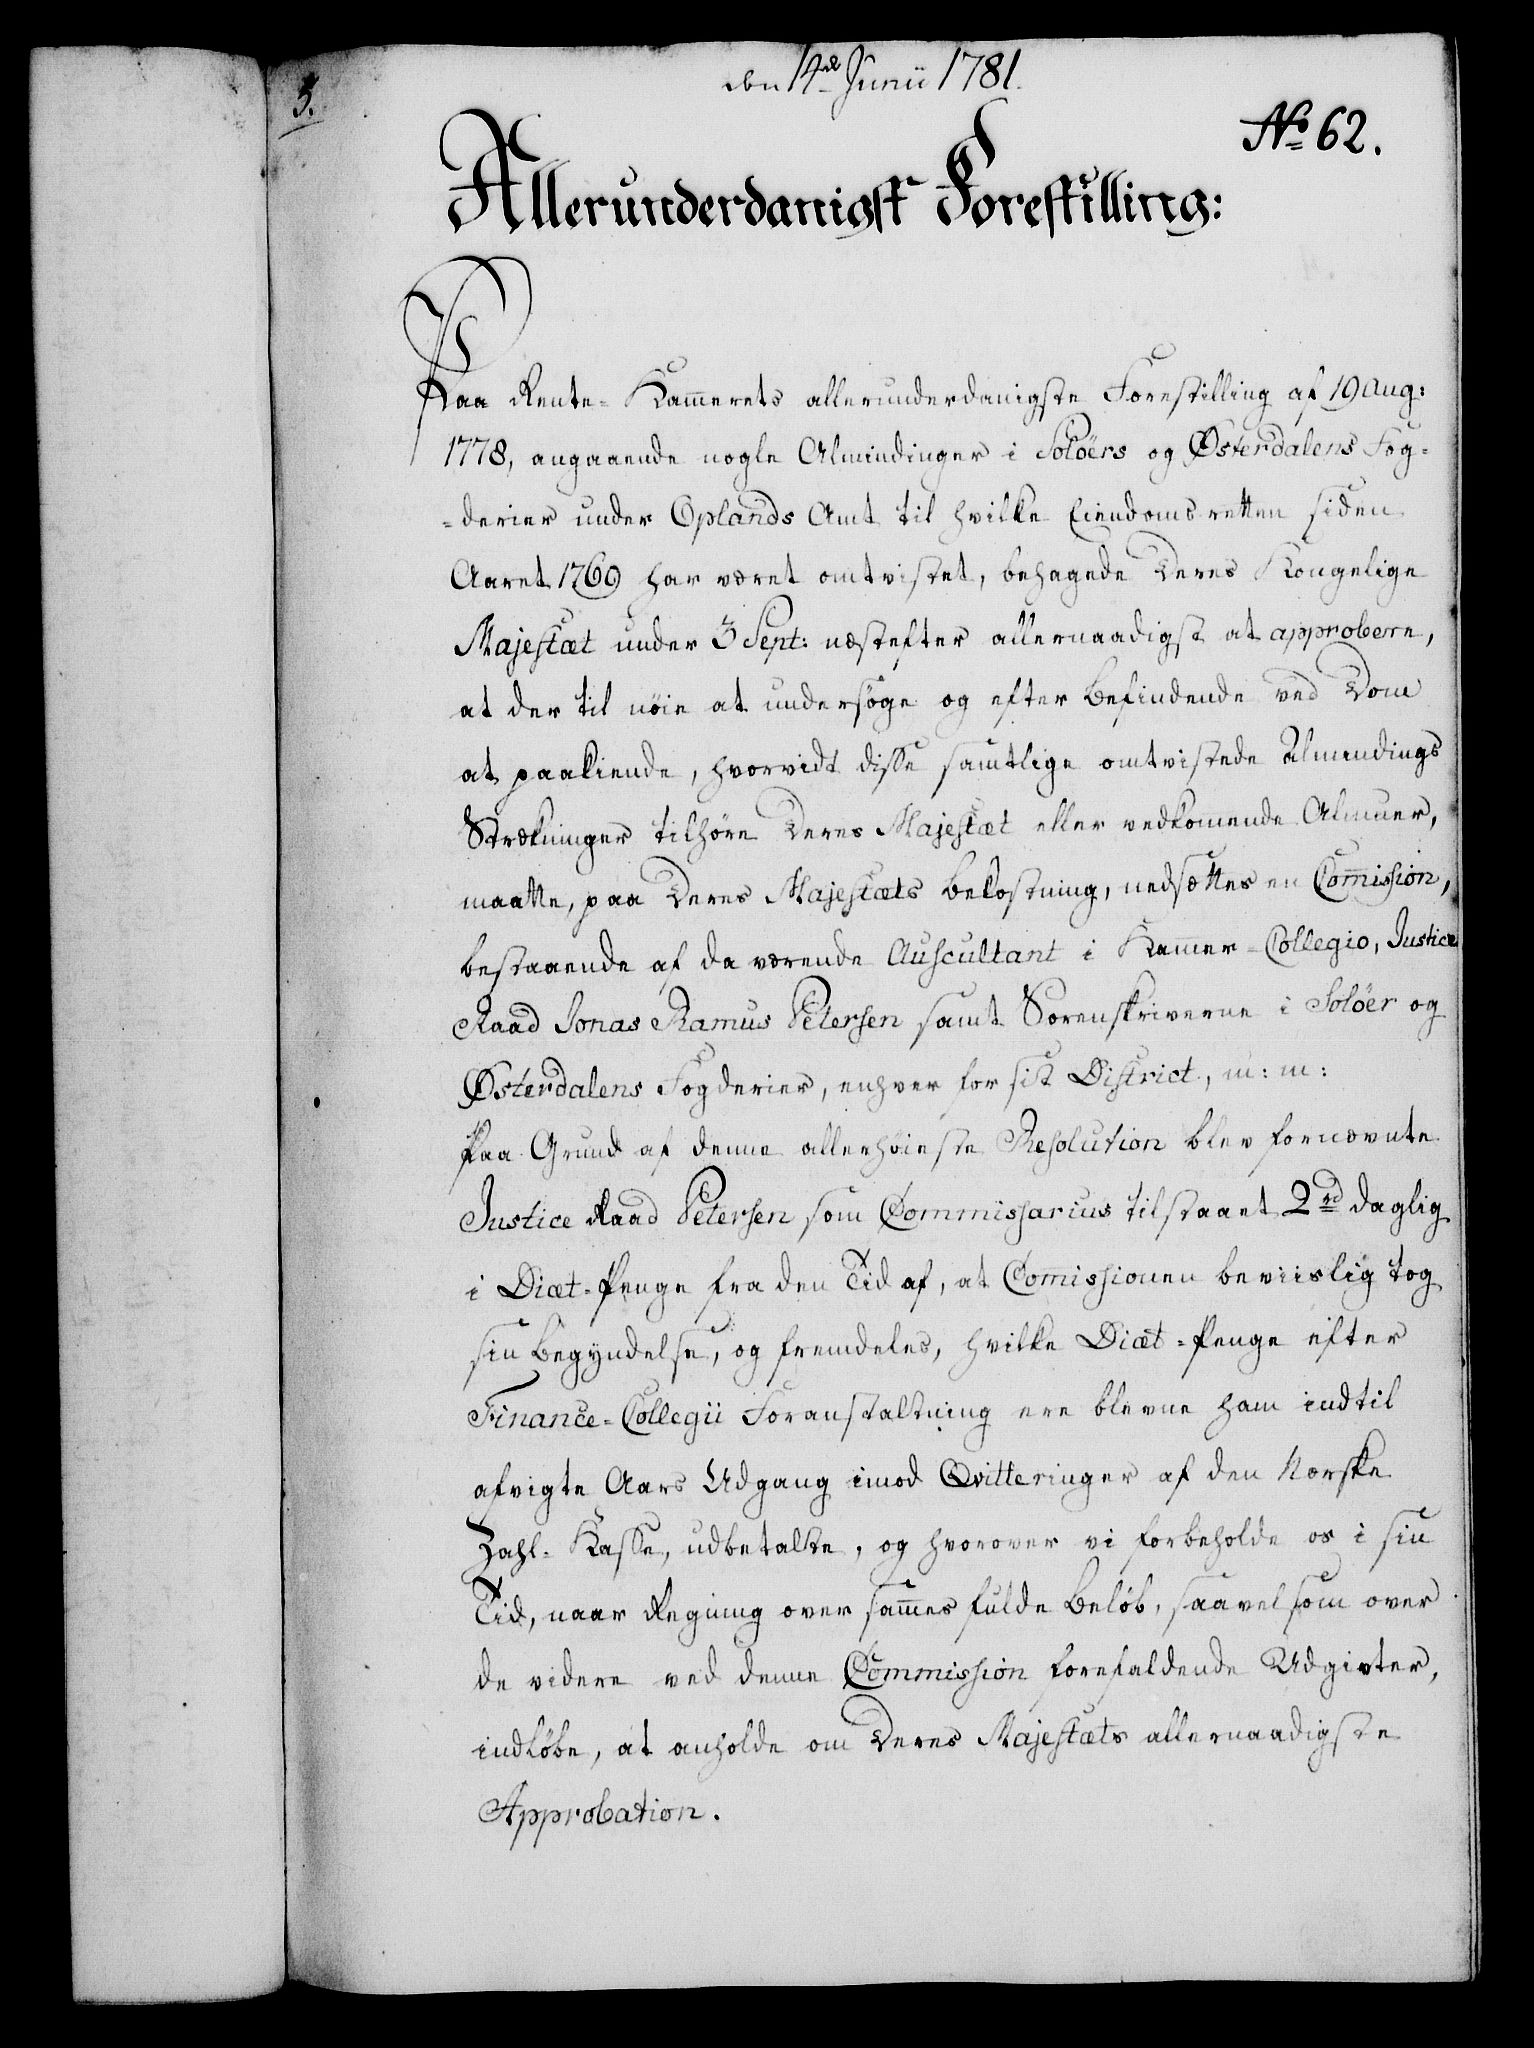 den 14de Junii 1781.
5.
No 62.
Allerunderdanigst Forestilling:
Paa Rente-Kam̅erets allerunderdanigste Forestilling af 19 Aug:
1778, angaaende nogle Almindinger i Solöers og Østerdalens Fog-
-derier under Oplands Amt til hvilke Eiendoms retten siden
Aaret 1769 har været omtvistet, behagede Deres Kongelige
Majestæt under 3 Sept: næstefter allernaadigst at approbere,
at der til nöie at undersöge og efter befindende ved Dom
at paakiende, hvorvidt disse samtlige omtvistede Almindings
Strækninger tilhöre Deres Majestæt eller vedkom̅ende Almuer,
maatte, paa Deres Majestæts bekostning, nedsættes en Com̅ission,
bestaaende af da værende Auscultant i Kam̅er-Collegio, Justice
Raad Jonas Ramus Petersen samt Sorenskriverne i Solöer og
Østerdalens Fogderier, enhver for sit District, m: m:
Paa Grund af denne allerhöieste Resolution blev fornævnte
Justice Raad Petersen som Commissarius tilstaaet 2 rd daglig
i Diæt-Penge fra den Tid af, at Com̅issionen beviislig tog
sin Begyndelse, og fremdeles, hvilke Diæt-Penge efter
Finance-Collegii Foranstaltning ere blevne ham indtil
afvigte Aars Udgang imod Qvitteringer af den Norske
Zahl-Kasse, udbetalte, og hvorover vi forbeholde os i sin
Tid, naar Regning over sam̅es fulde Beløb, saavelsom over
de videre ved denne Commission forefaldende Udgivter,
indløbe, at anholde om Deres Majestæts allernaadigste
Approbation.